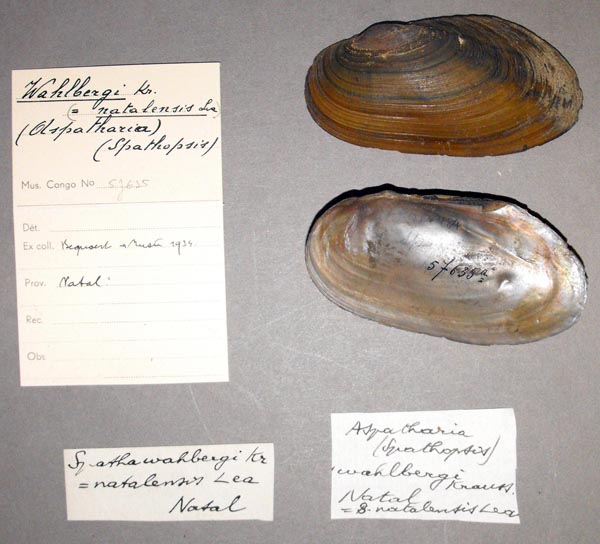 Wahlbergi Kr.
(= natalensis Lea)
(Aspatharia)
(Spathopsis)
Mus. Congo No 57635
Dét.
Ex coll. 1934.
Prov. Natal:
Rec.
Obs
Spatha wahbergi Kr
= natalensis Lea
Natal
Aspatharia
(Spathopsis)
wahlbergi
Krauss.
Natal
= S. natalensis Lea